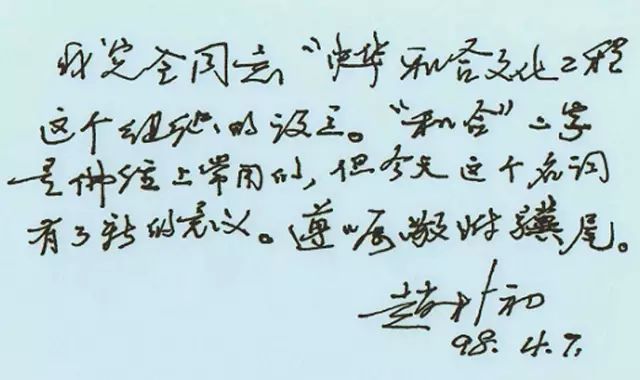 我完全同意“中华和合文化工程
这个组织的设立。“和合”二字
是佛经上常用的，但今天这个名词
有了新的意义。遵嘱敬附骥尾。
赵朴初
98. 4. 7.